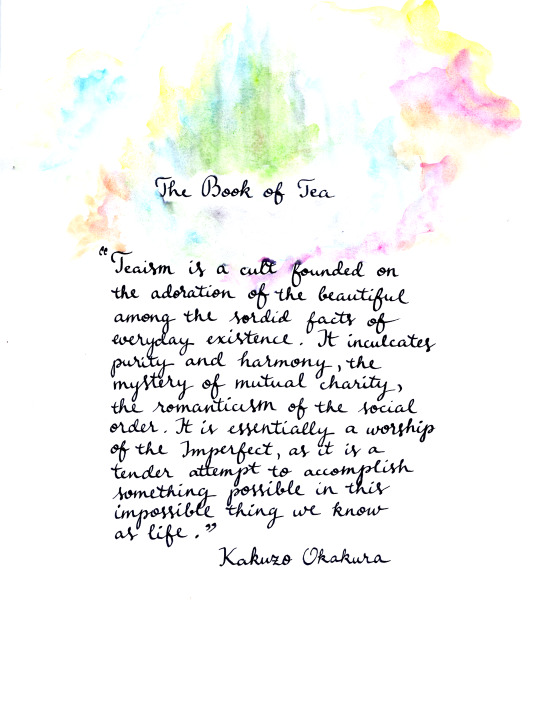 The Book of Tea
"Teaism is a cult founded on
the adoration of the beautiful
among the sordid facts of
everyday existence. It inculcates
purity and harmony, the
mystery of mutual charity,
the romanticism of the social
order. It is essentially a worship
of the Imperfect, as it is a
tender attempt to accomplish
something possible in this
impossible thing we know
as life."
Kakuzo Okakura